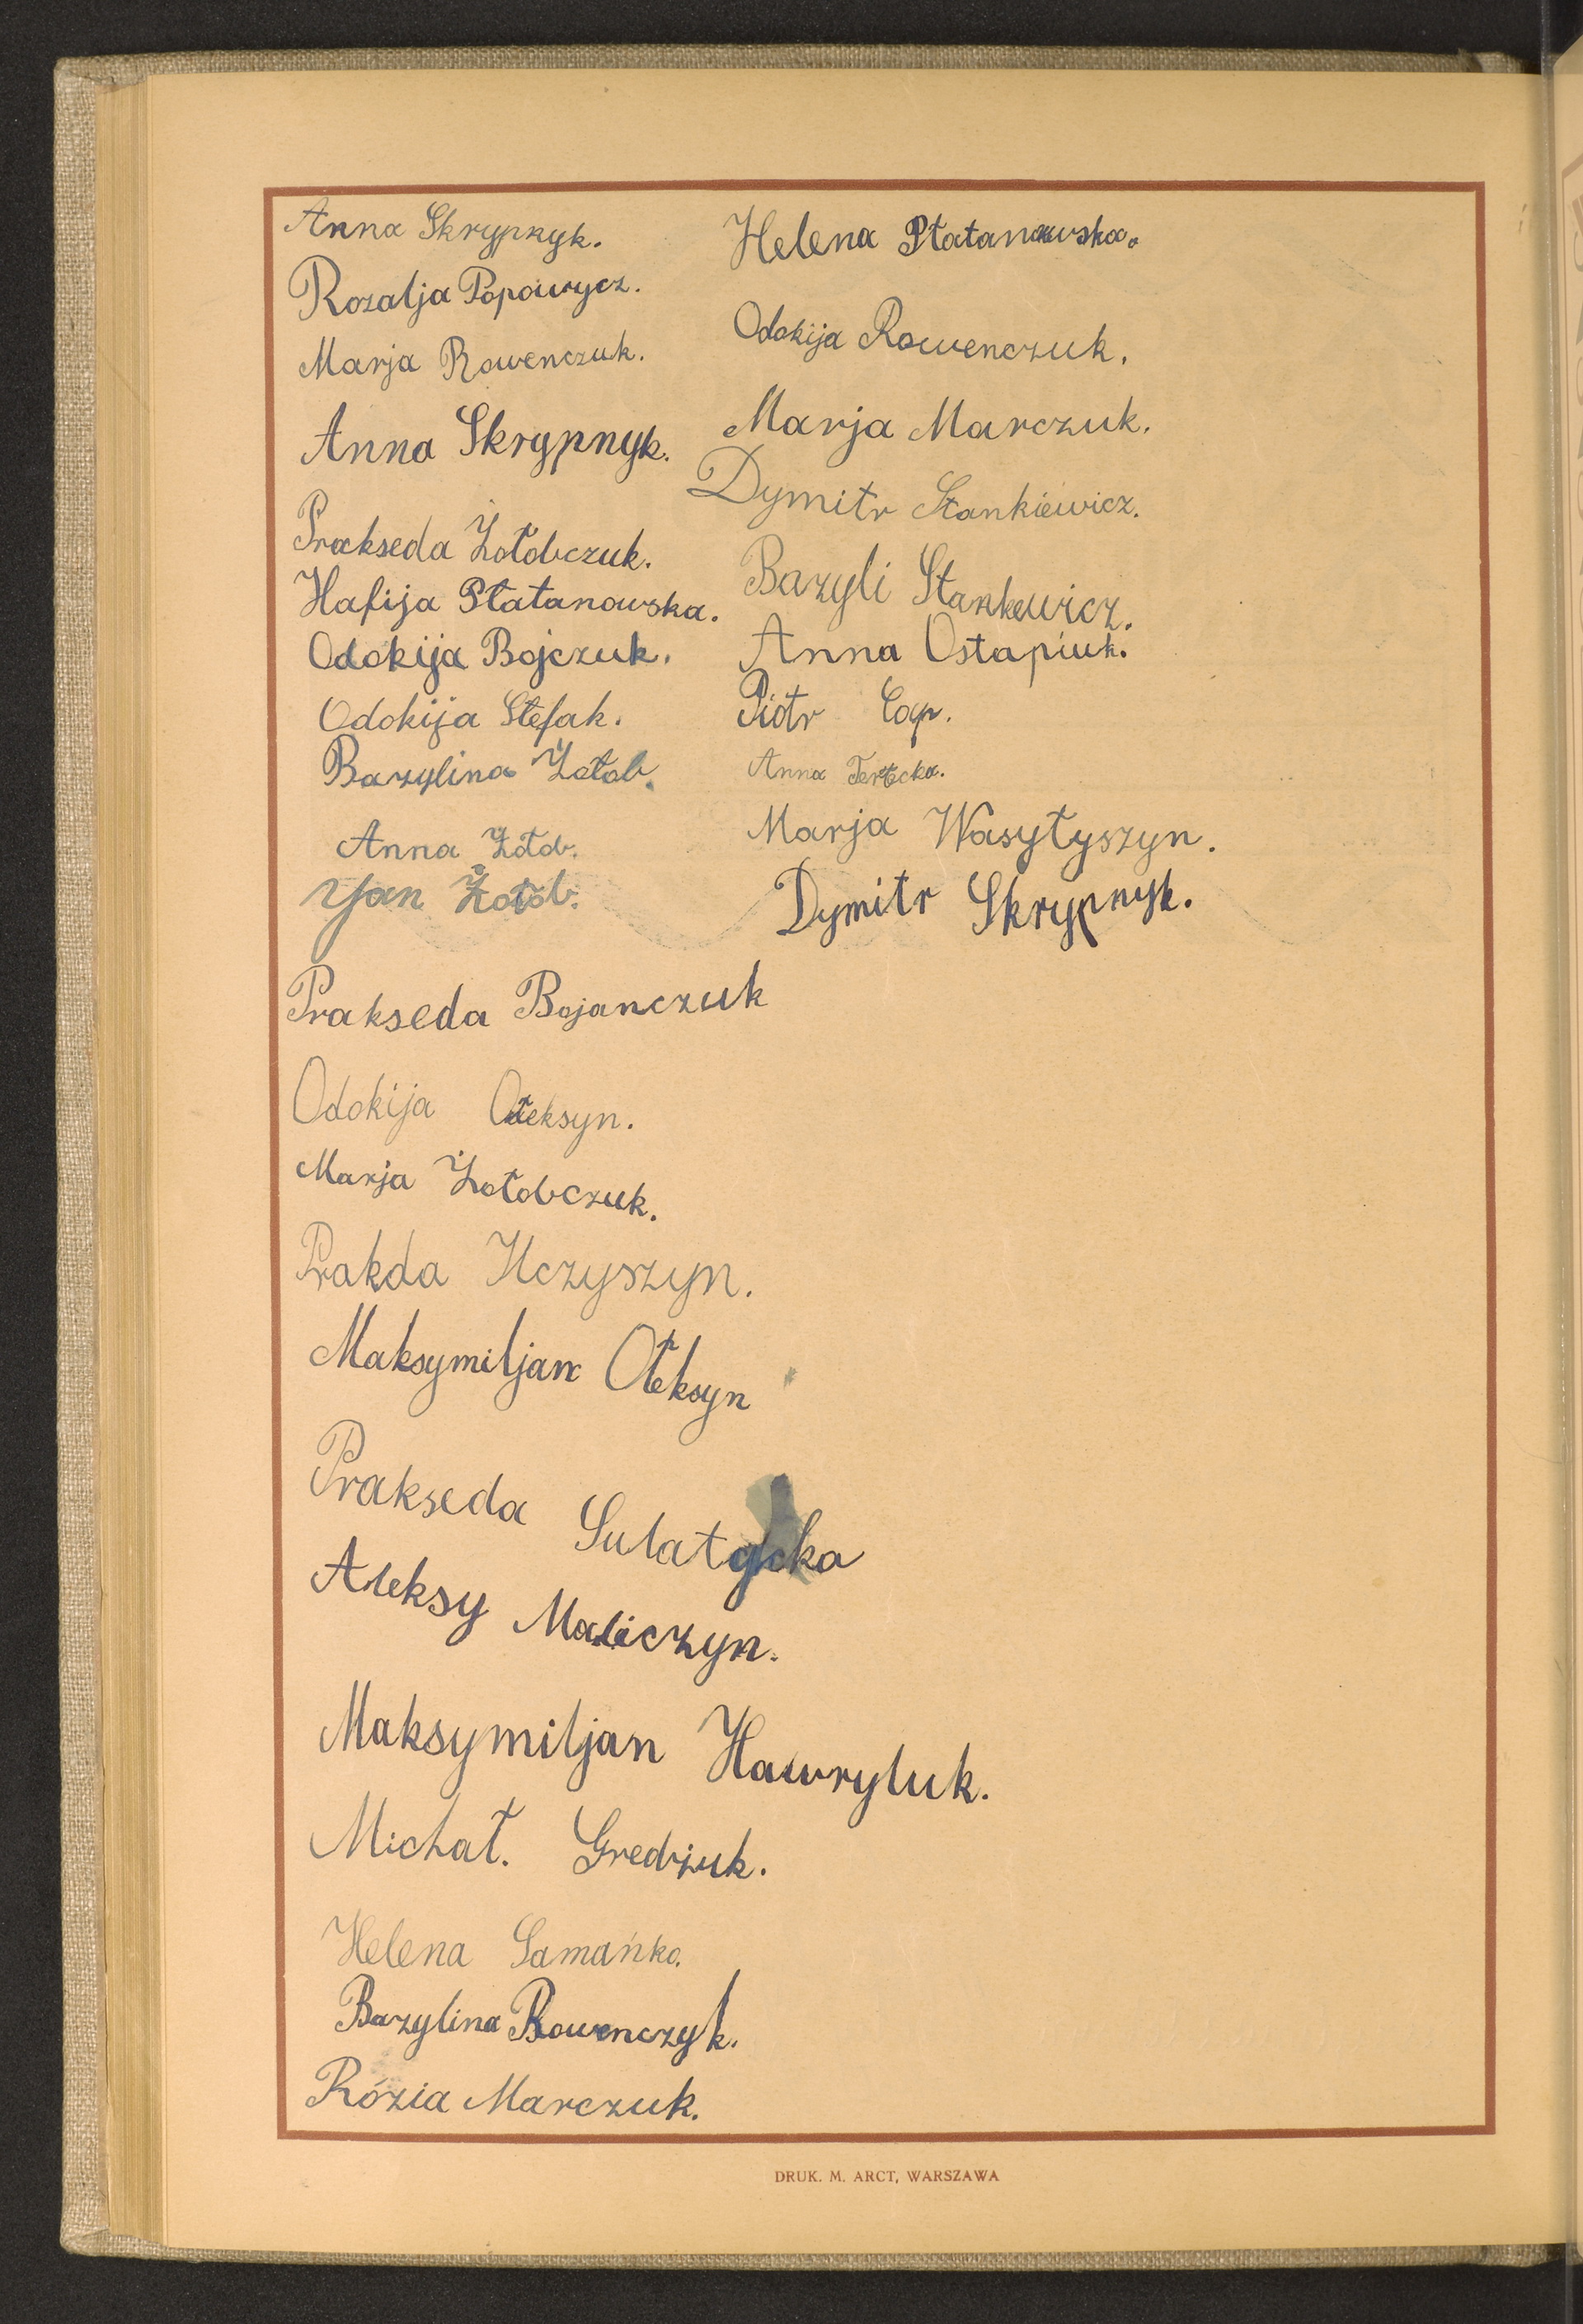 Anna Skrypnyk.
Rozalja Popowycz.
Marja Rowenczuk.
Anna Skrypnyk.
Prakseda Żołobczuk.
Hafija Płatanowska.
Odokija Bojczuk.
Odokija Stefak.
Bazylina Żołob.
Anna Żołob.
Jan Żołób.
Prakseda Bojanczuk
Odokija Ołeksyn.
Marja Żołobczuk.
Prakda Hczyszyn.
Maksymiljan Ołeksyn
Prakseda Sulatycka
Aleksy Maliczyn.
Maksymiljan Hawryluk.
Michał. Gredżuk.
Helena Samańko.
Bazylina Rowenczyk.
Rózia Marczuk.
Helena Płatanowska.
Odokija Rowenczuk.
Marja Marczuk.
Dymitr Stankiewicz.
Bazyli Stankewicz.
Anna Ostapiuk.
Piotr Cap.
Anna
Marja Wasyłyszyn.
Dymitr Skrypnyk.
DRUK. M. ARCT, WARSZAWA